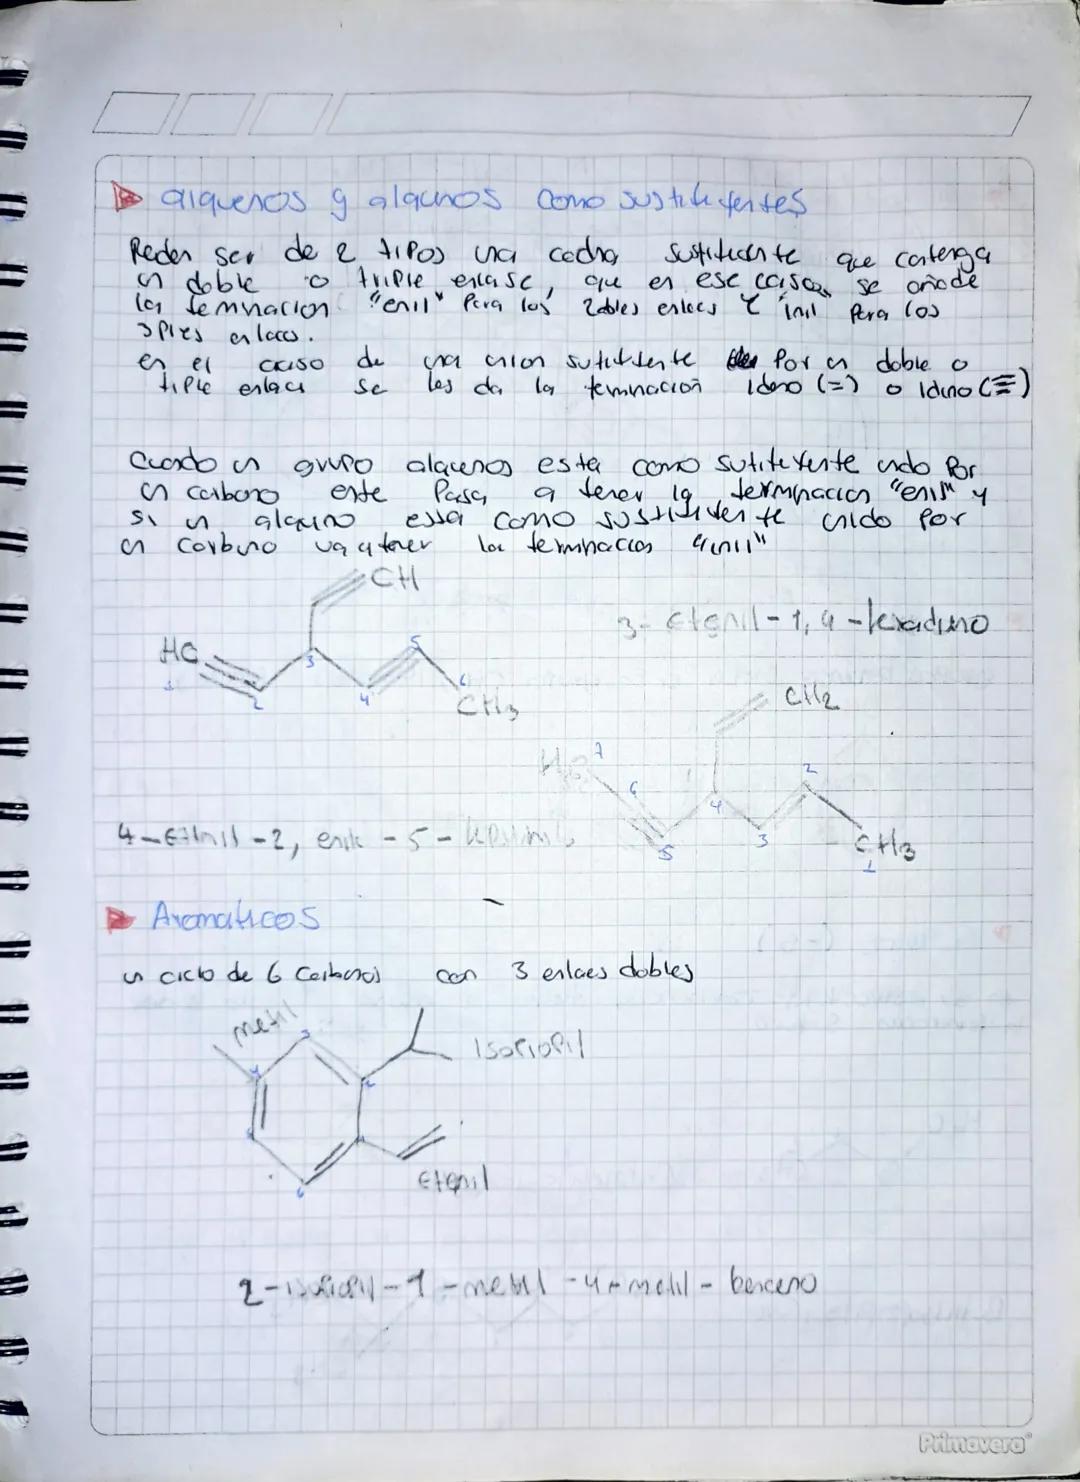 alquenos y alquinos como sustituyentes
Peden ser de 2 tipos una cadna sustituente que contenga
un doble o triple enlase, que en ese casoa se añade
la temnacion "enil" Para los 2obles enlacs Y inil para los
3ples enlaces.
en el caiso de una union sutitutente por un doble o
tiple enlace se les da la temnacion ideno (=) o idino (≡)
Cuando un grupo alquenos esta como sutituyente undo Por
un carbono este Pasa a tener la terminacion "enil" y
si un alquino essa como sustituyente unido Por
un carbono va a tener la terminacion "inil"
CH
3- Etenil - 1, 4 - hexadino
HC
3
5
1
2
4
6
CH3
CH2
7
H3
6
2
4
4-Etinil -2, - 5 -
5
3
CH3
1
Aromaticos
un ciclo de 6 Carbonos con 3 enlaes dobles
metil
3
Isopropil
4
2
5
1
6
Etenil
2-isopropil-1-metil-4-metil-benceno
Primavera